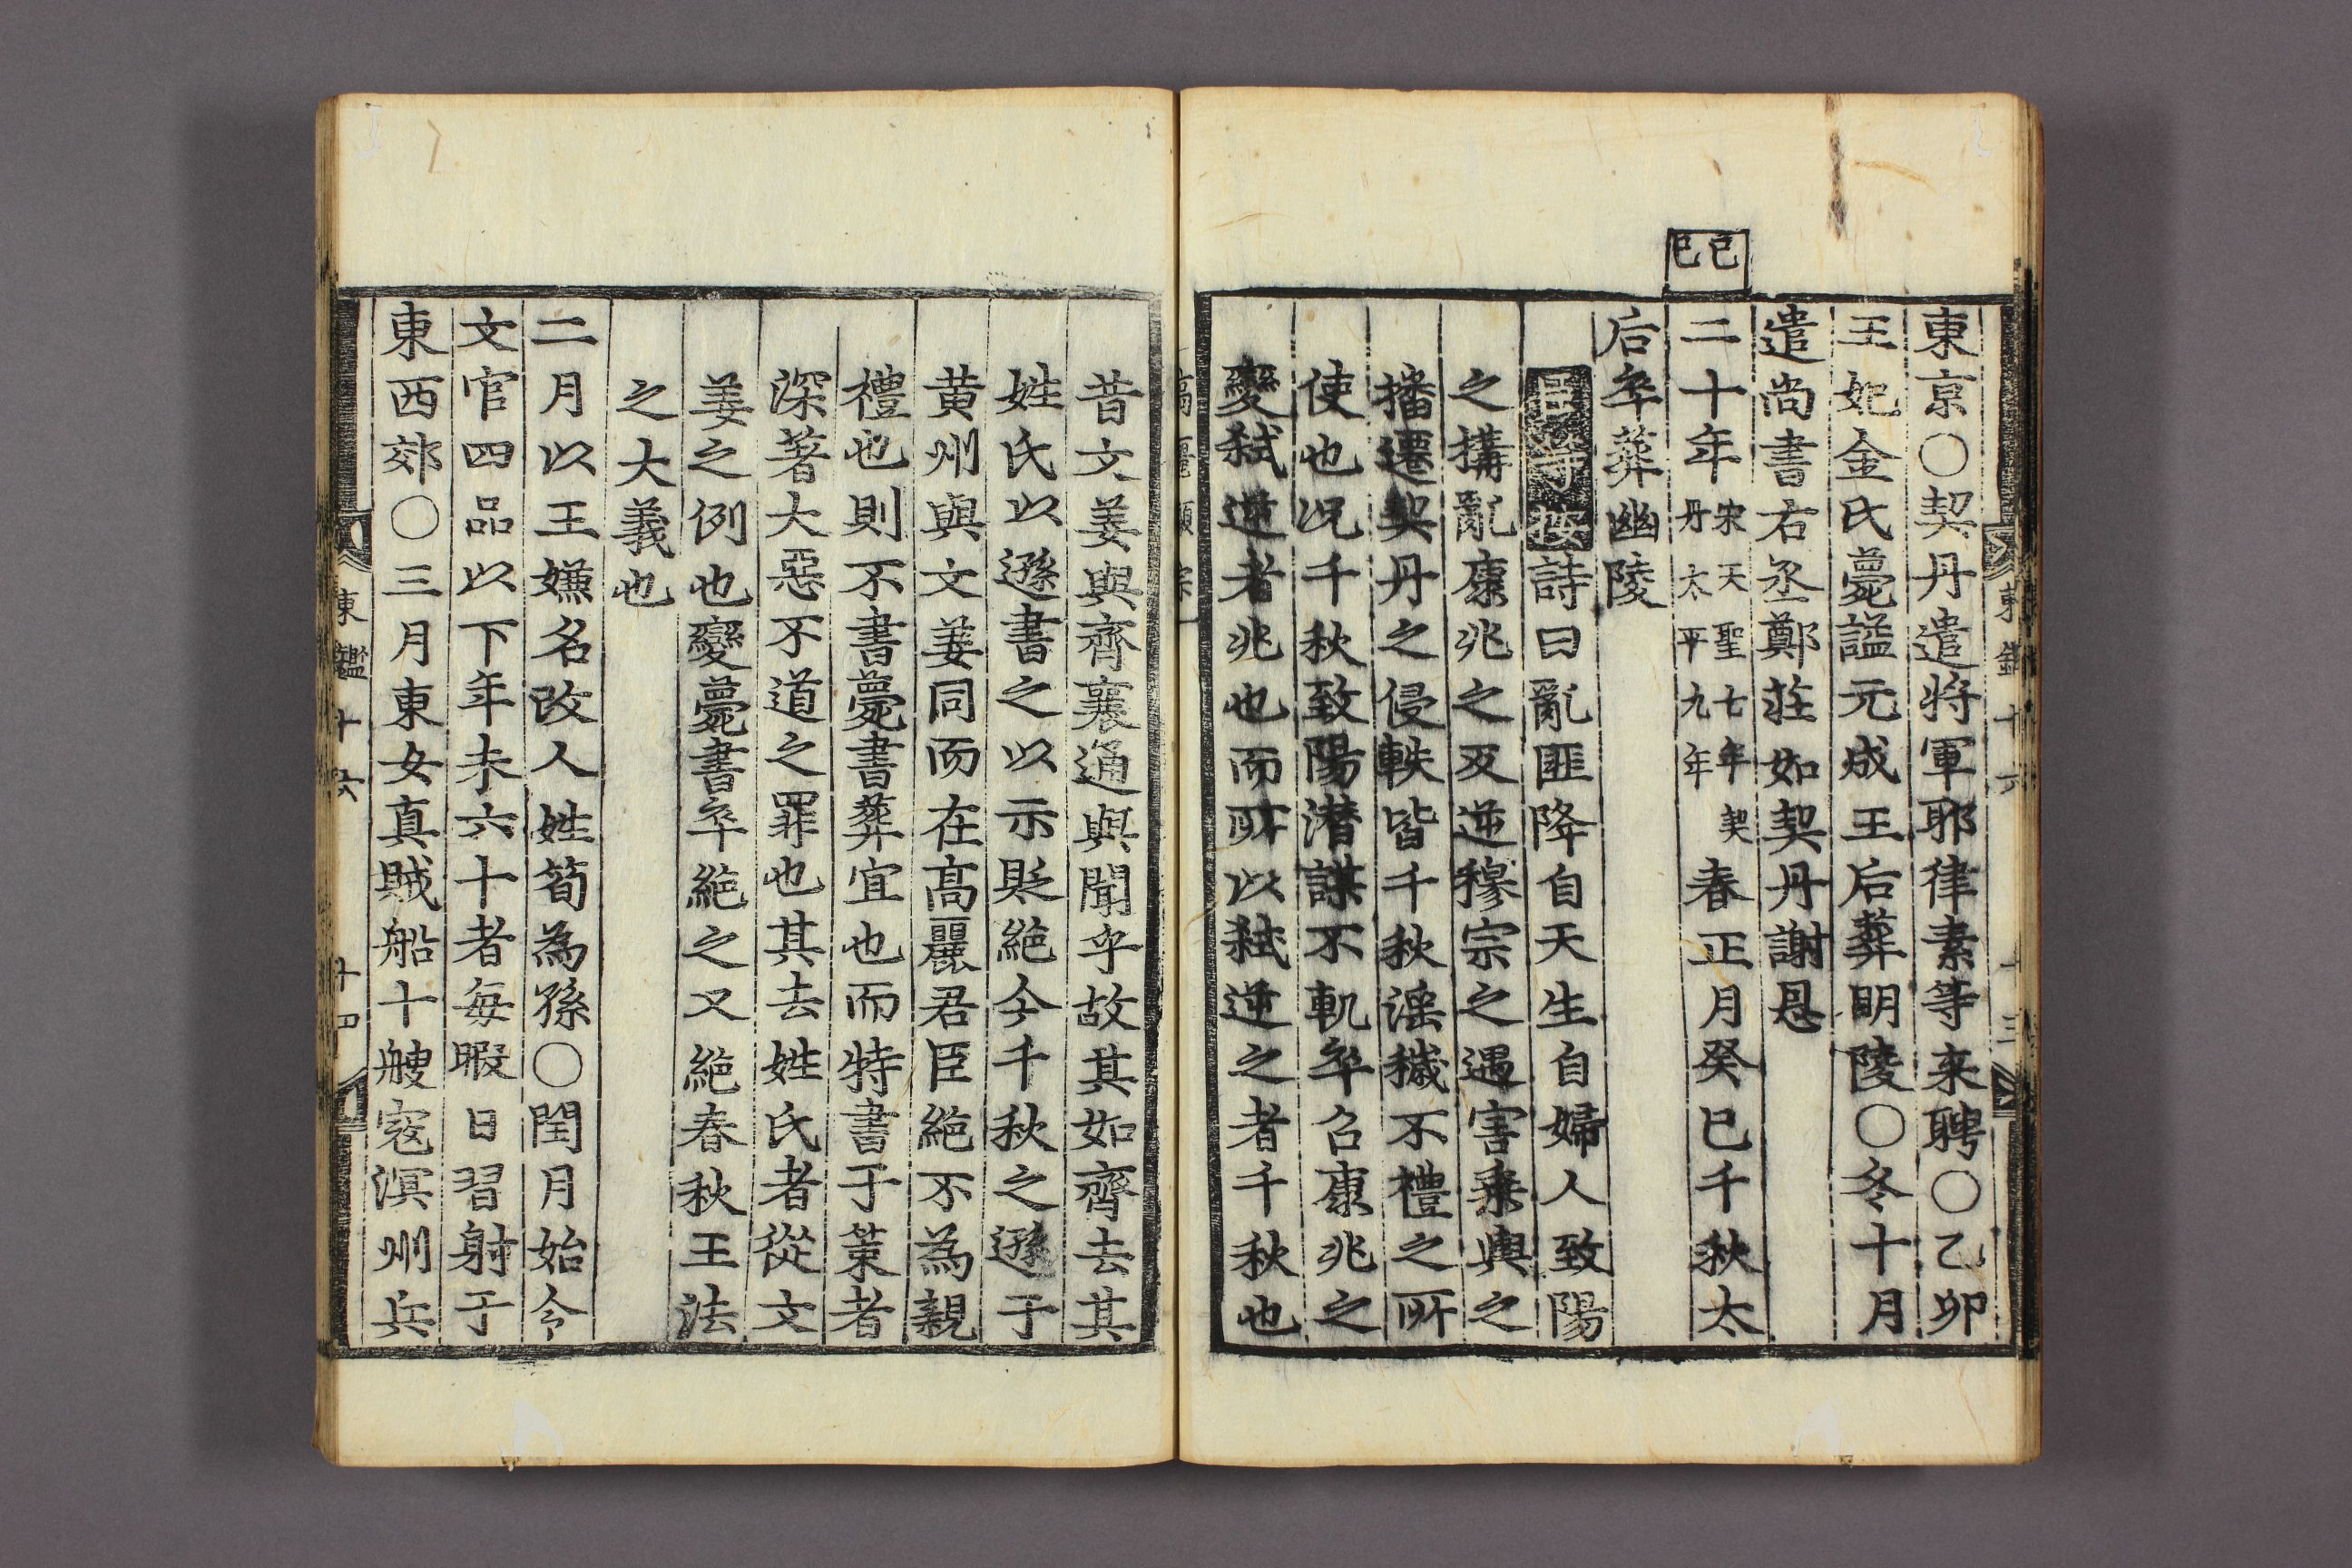 己巳
東京○契丹遣將軍耶律素等来聘○乙卯
王妃金氏薨謚元成王后葬明陵○冬十月
遣尚書右丞鄭莊如契丹謝恩
二十年宋天聖七年契丹太平九年春正月癸巳千秋太
后卒葬幽陵
詩曰亂匪降自天生自婦人致陽
之搆亂康兆之叐逆穆宗之遇害乗輿之
播遷契丹之侵軼皆千秋淫穢不禮之所
使也況千秋致陽潜謀不軌卒召康兆之
變弑逆者兆也而所以弑逆之者千秋也
昔文姜與齊襄通與聞乎故其如齊去其
姓氏以遜書之以示貶絶今千秋之遜于
黄州與文姜同而在髙麗君臣絶不為親
禮也則不書薨書葬宜也而特書于策者
深著大惡不道之罪也其去姓氏者從文
姜之例也變薨書卒絶之又絶春秋王法
之大義也
二月以王嫌名改人姓筍為孫○閏月始令
文官四品以下年未六十者每暇日習射于
東西郊○三月東女真賊船十艘寇溟州兵
東鑑十六
十四